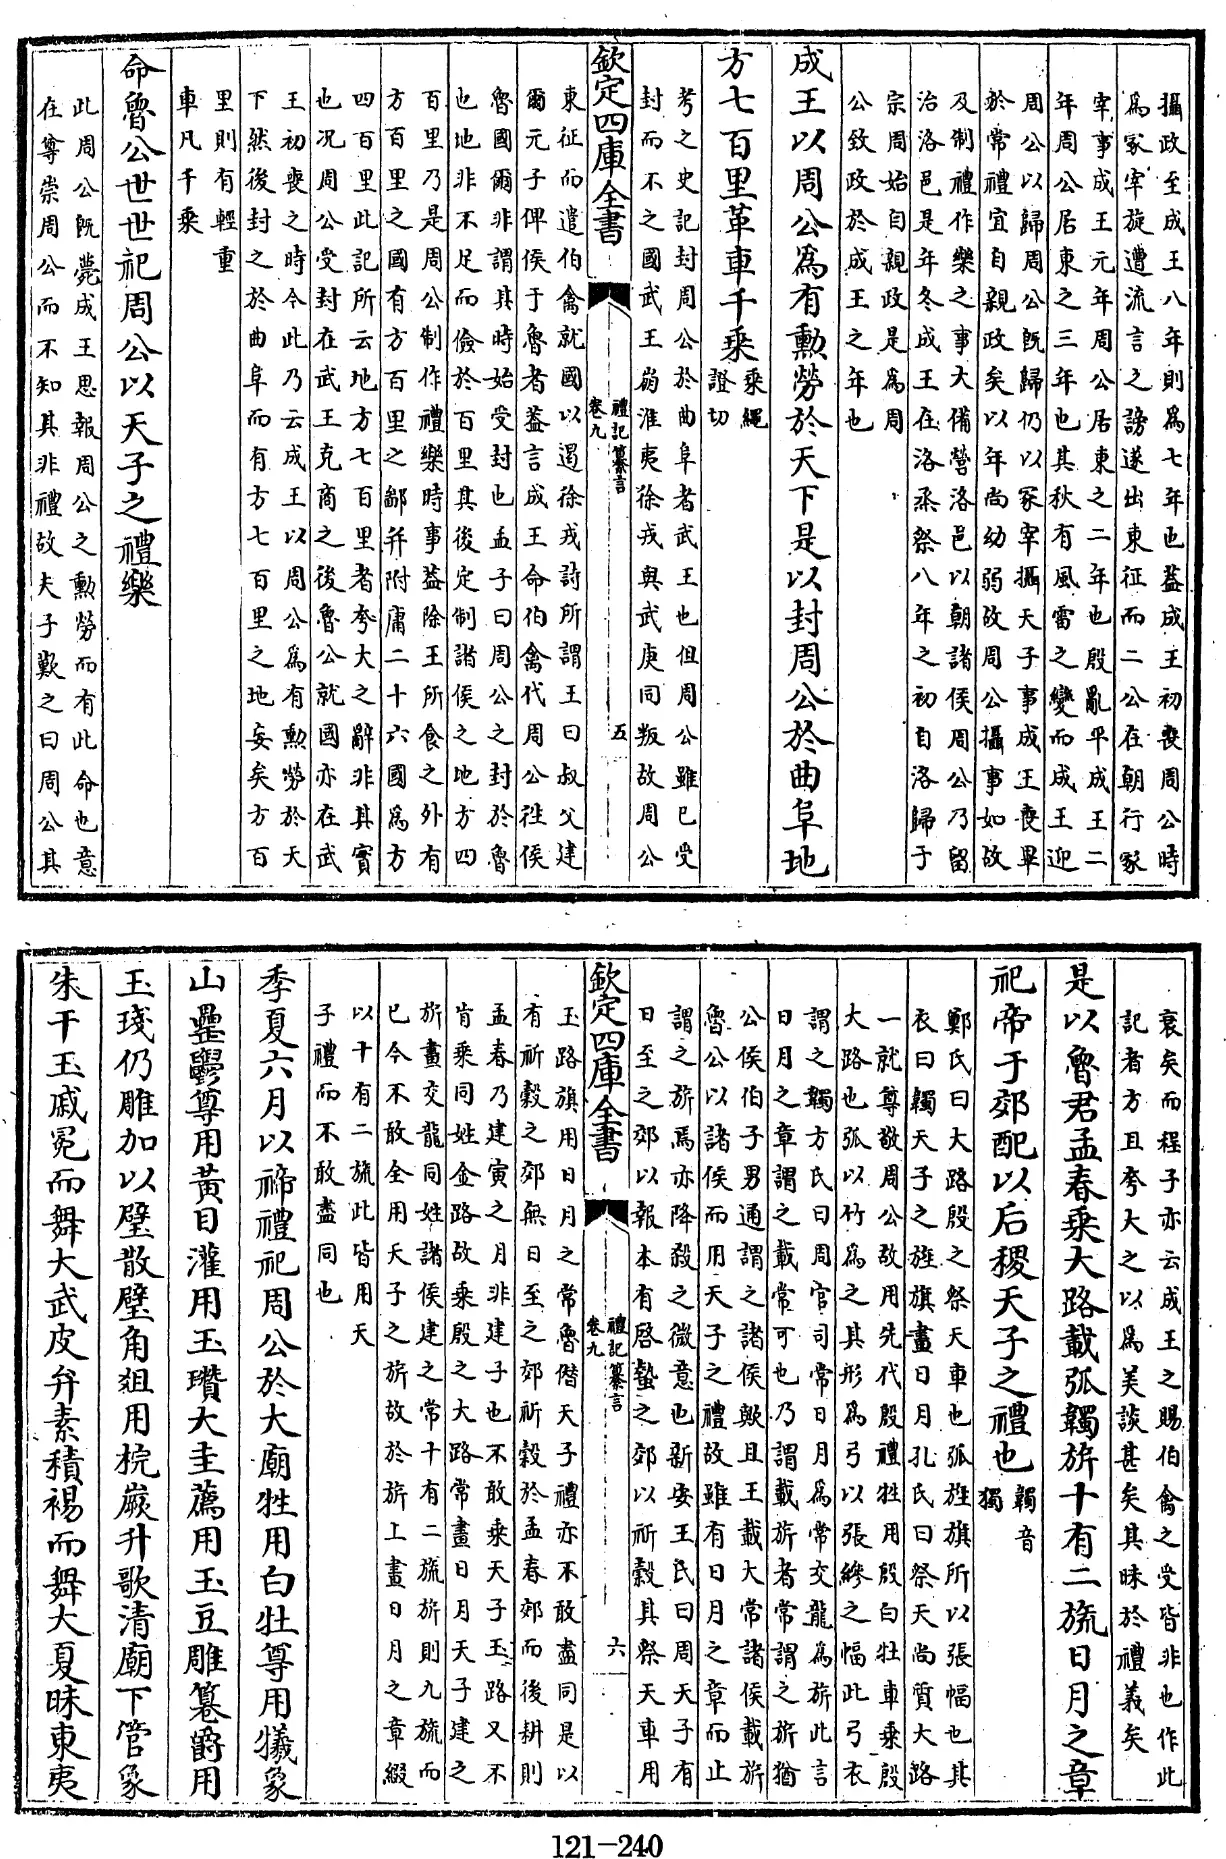 攝政至成王八年則為七年也葢成王初喪周公時
為冡宰旋遭流言之謗遂出東征而二公在朝行冡
宰事成王元年周公居東之二年也殷亂平成王二
年周公居東之三年也其秋有風雷之變而成王迎
周公以歸周公旣歸仍以冡宰攝天子事成王喪畢
於常禮宜自親政矣以年尚幼弱故周公攝事如故
及制禮作樂之事大備營洛邑以朝諸侯周公乃留
治洛邑是年冬成王在洛烝祭八年之初自洛歸于
宗周始自親政是為周
公致政於成王之年也
成王以周公為有勳勞於天下是以封周公於曲阜地
方七百里革車千乘
乘繩
證切
考之史記封周公於曲阜者武王也但周公雖已受
封而不之國武王崩淮夷徐戎與武庚同叛故周公
欽定四庫全書
禮記纂言
卷九
五
東征而遣伯禽就國以遏徐戎詩所謂王曰叔父建
爾元子俾侯于魯者葢言成王命伯禽代周公徃侯
魯國爾非謂其時始受封也孟子曰周公之封於魯
也地非不足而儉於百里其後定制諸侯之地方四
百里乃是周公制作禮樂時事葢除王所食之外有
方百里之國有方百里之鄙幷附庸二十六國為方
四百里此記所云地方七百里者夸大之辭非其實
也况周公受封在武王克商之後魯公就國亦在武
王初喪之時今此乃云成王以周公為有勲勞於天
下然後封之於曲阜而有方七百里之地妄矣方百
里則有輕重
車凡千乘
命魯公世世祀周公以天子之禮樂
此周公旣薨成王思報周公之勲勞而有此命也意
在尊崇周公而不知其非禮故夫子歎之曰周公其
衰矣而程子亦云成王之賜伯禽之受皆非也作此
記者方且夸大之以為美談甚矣其昧於禮義矣
是以魯君孟春乘大路載弧韣旂十有二旒日月之章
祀帝于郊配以后稷天子之禮也
韣音
獨
鄭氏曰大路殷之祭天車也弧旌旗所以張幅也其
衣曰韣天子之旌旗畫日月孔氏曰祭天尚質大路
一就尊敬周公故用先代殷禮牲用殷白牡車乘殷
大路也弧以竹為之其形為弓以張縿之幅此弓衣
謂之韣方氏曰周官司常日月為常交龍為旂此言
日月之章謂之載常可也乃謂載旂者常謂之旂猶
公侯伯子男通謂之諸侯歟且王載大常諸侯載旂
魯公以諸侯而用天子之禮故雖有日月之章而止
謂之旂焉亦降殺之微意也新安王氏曰周天子有
日至之郊以報本有啓蟄之郊以祈穀其祭天車用
欽定四庫全書
禮記纂言
卷九
六
玉路旗用日月之常魯僭天子禮亦不敢盡同是以
有祈穀之郊無日至之郊祈穀於孟春郊而後耕則
孟春乃建寅之月非建子也不敢乘天子玉路又不
肯乘同姓金路故乘殷之大路常畫日月天子建之
旂畫交龍同姓諸侯建之常十有二旒旂則九旒而
已今不敢全用天子之旂故於旂上畫日月之章綴
以十有二旒此皆用天
子禮而不敢盡同也
季夏六月以禘禮祀周公於大廟牲用白牡尊用犧象
山罍鬱尊用黃目灌用玉瓚大圭薦用玉豆雕篹爵用
玉琖仍雕加以璧散璧角俎用梡嶡升歌清廟下管象
朱干玉戚冕而舞大武皮弁素積裼而舞大夏昧東夷
121-240